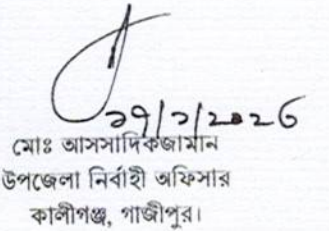 ১৭/১/২০২৬
মোঃ আসসাদিকজামান
উপজেলা নির্বাহী অফিসার
কালীগঞ্জ, গাজীপুর।